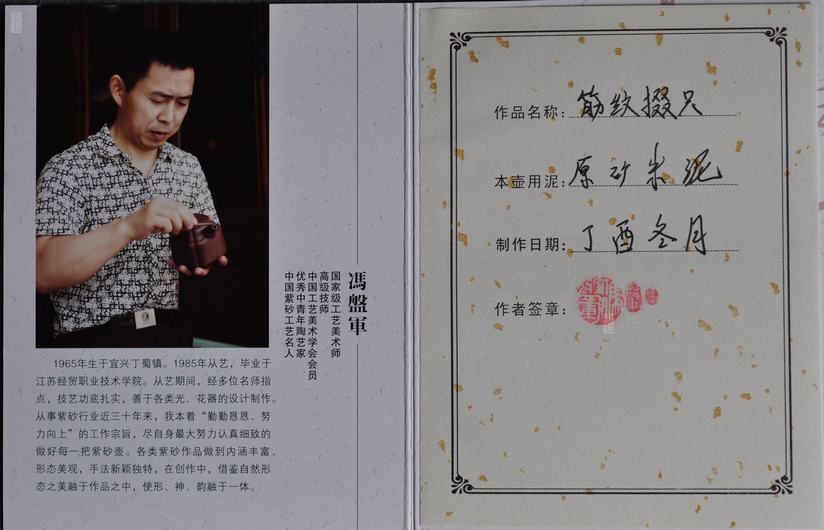 馮盤軍
国家级工艺美术师
高级技师
中国工艺美术学会会员
优秀中青年陶艺家
中国紫砂工艺名人
1965年生于宜兴丁蜀镇。1985年从艺，毕业于
江苏经贸职业技术学院。从艺期间，经多位名师指
点，技艺功底扎实，善于各类光、花器的设计制作。
从事紫砂行业近三十年来，我本着“勤勤恳恳、努
力向上”的工作宗旨，尽自身最大努力认真细致的
做好每一把紫砂壶。各类紫砂作品做到内涵丰富、
形态美观，手法新颖独特，在创作中，借鉴自然形
态之美融于作品之中，使形、神、韵融于一体。
作品名称：筋纹掇只
本壶用泥：原矿朱泥
制作日期：丁酉冬月
作者签章：